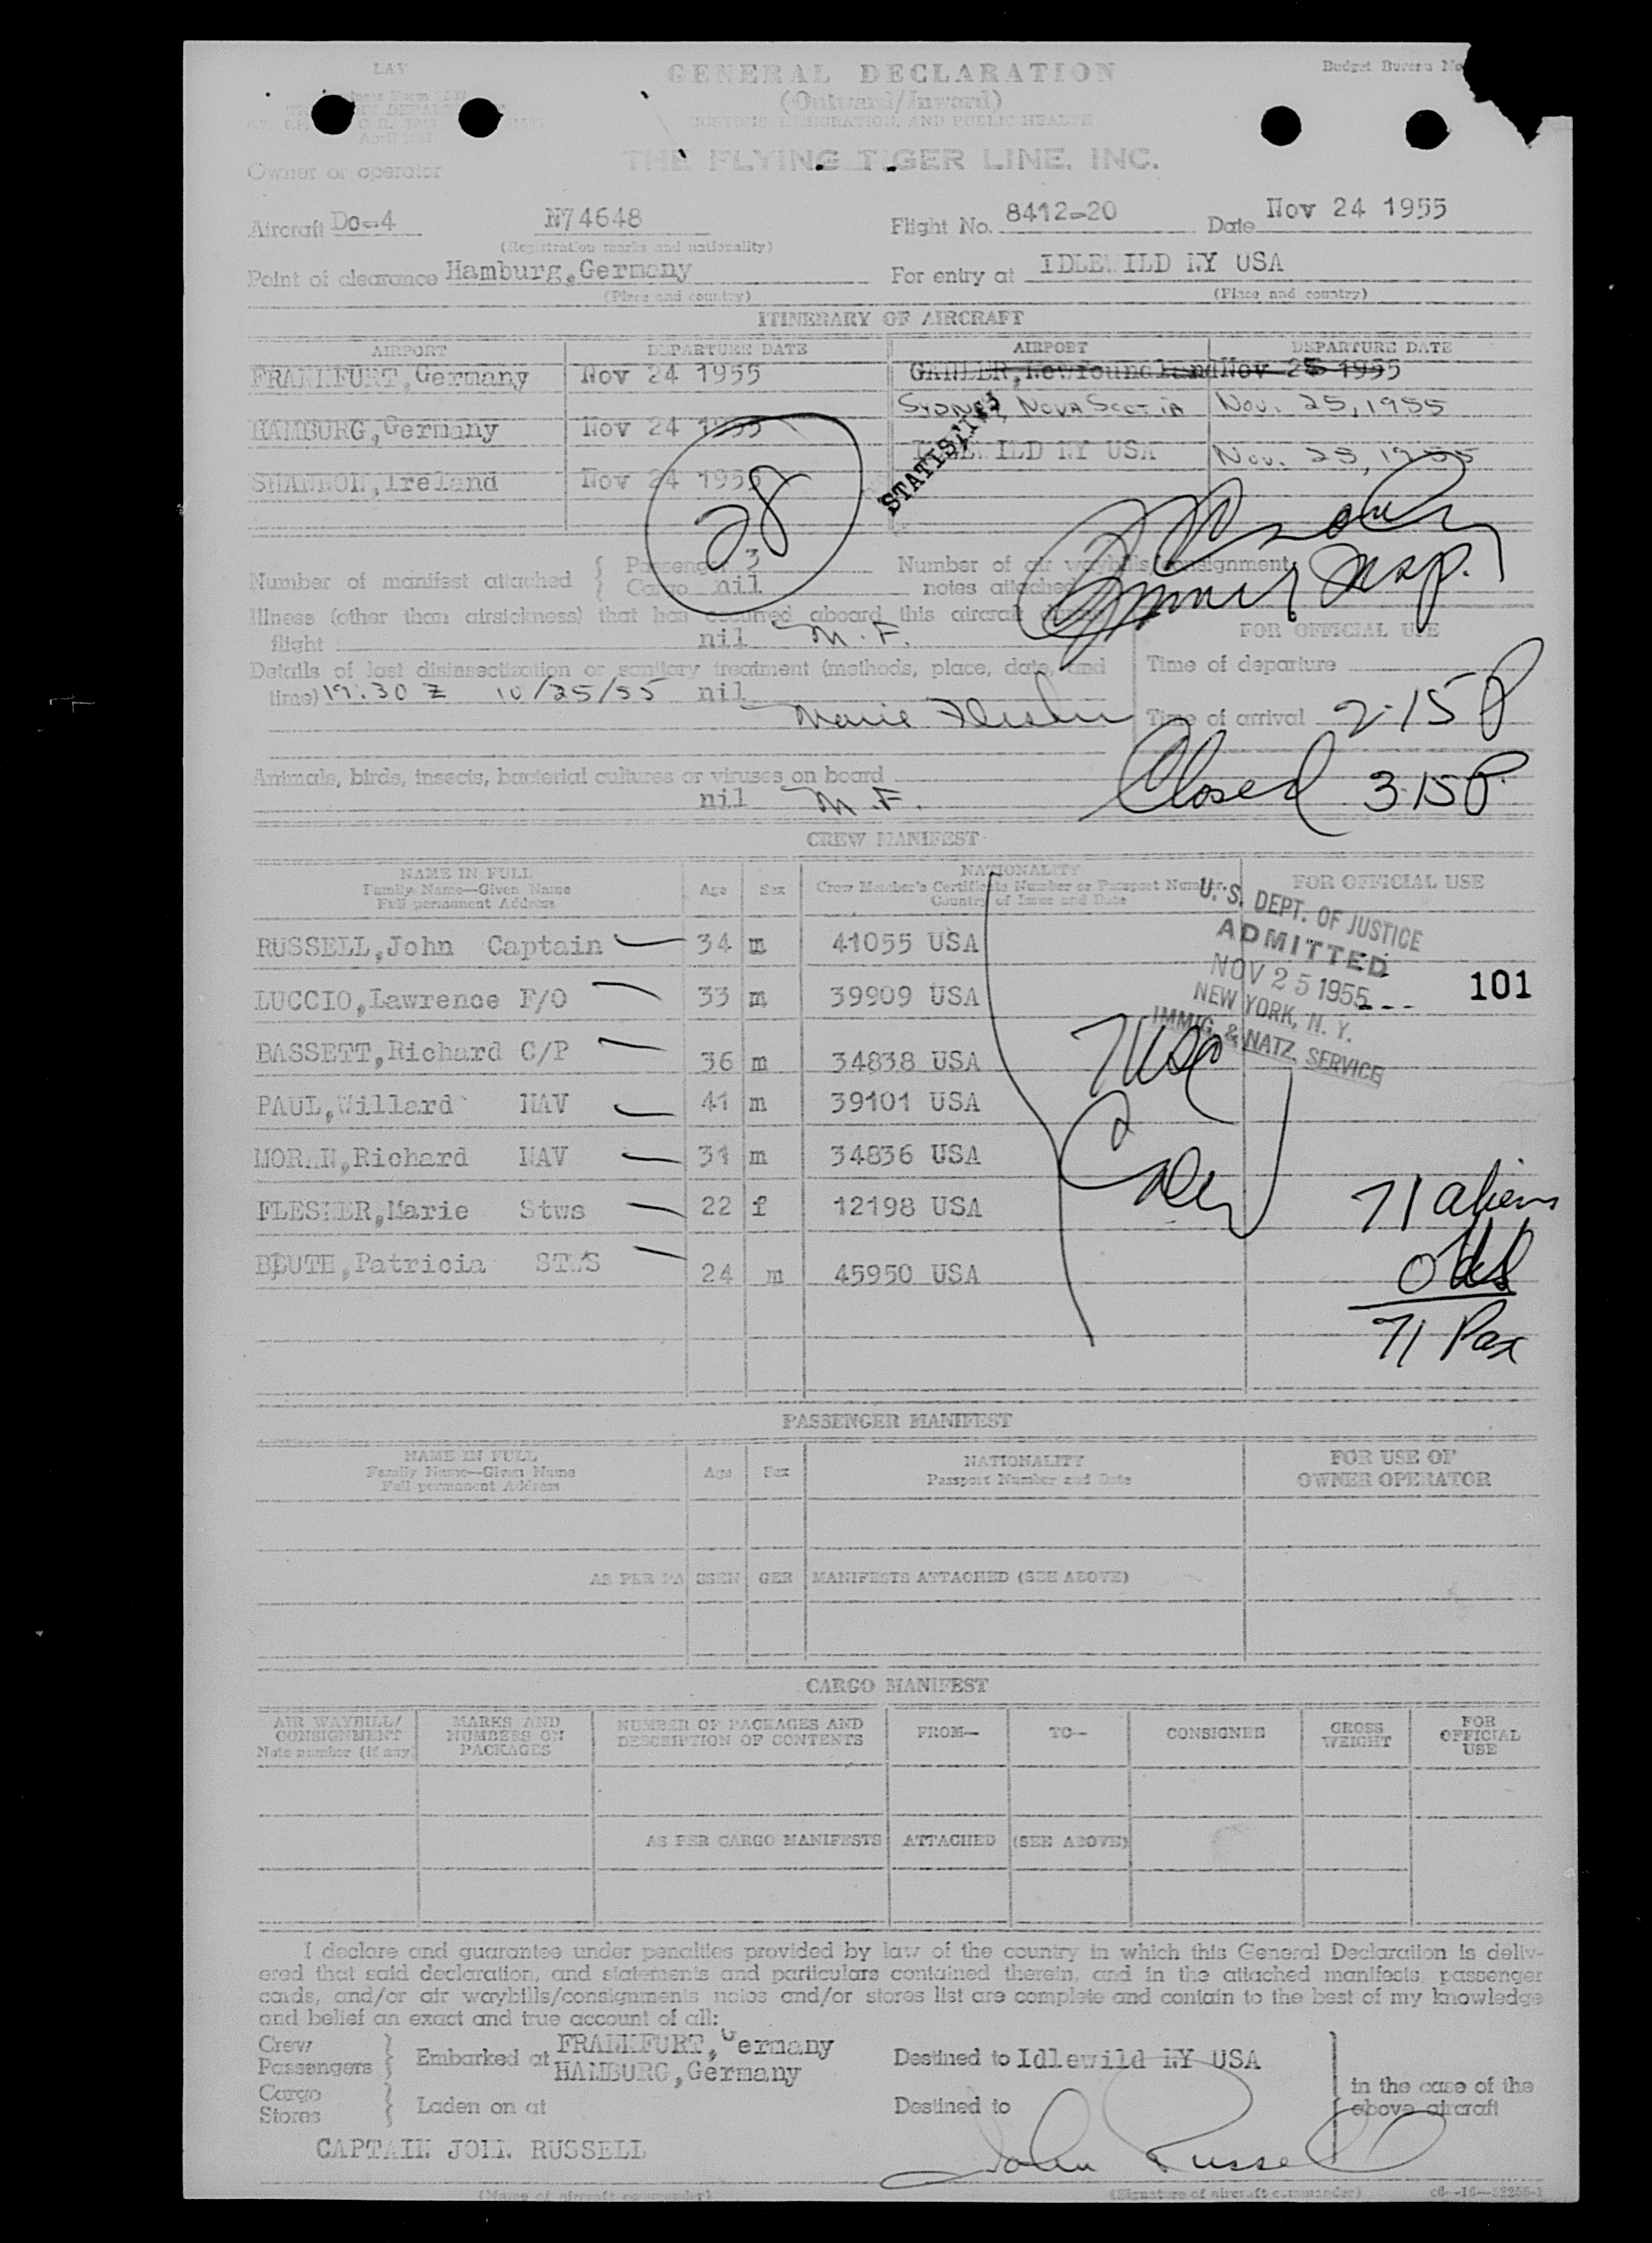 LAV
GENERAL DECLARATION
Budget Bureau No
(Outward/Inward)
CUSTOMS, IMMIGRATION, AND PUBLIC HEALTH
April
THE FLYING TIGER LINE, INC.
Owner or operator
Aircraft Dc-4 N74648 Flight No. 8412-20 Date Nov 24 1955
(Registration marks and nationality)
Point of clearance Hamburg, Germany For entry at IDLEWILD NY USA
(Place and country) (Place and country)
ITINERARY OF AIRCRAFT
AIRPORT DEPARTURE DATE AIRPORT DEPARTURE DATE
FRANKFURT, Germany Nov 24 1955 GANDER, Newfoundland Nov 25 1955
SYDNEY, NOVA SCOTIA Nov. 25, 1955
HAMBURG, Germany Nov 24 1955 IDLEWILD NY USA Nov. 25, 1955
SHANNON, Ireland Nov 24 1955
28
STATISTICS
Number of manifest attached { Passenger 3 Number of air waybills/consignment
Cargo nil notes attached
Insp.
Illness (other than airsickness) that has occurred aboard this aircraft during
flight nil M. F.
FOR OFFICIAL USE
Details of last disinsectization or sanitary treatment (methods, place, date, and
time) 19:30 Z 10/25/55 nil
Marie Flesher
Time of departure
Time of arrival 2:15 P
Closed 3:15 P.
Animals, birds, insects, bacterial cultures or viruses on board
nil M. F.
CREW MANIFEST
NAME IN FULL
Family Name—Given Name
Full permanent Address
Age Sex
NATIONALITY
Crew Member's Certificate Number or Passport Number
Country of Issue and Date
FOR OFFICIAL USE
RUSSELL, John Captain 34 m 41055 USA
LUCCIO, Lawrence F/O 33 m 39909 USA
BASSETT, Richard C/P 36 m 34838 USA
PAUL, Willard NAV 41 m 39101 USA
MORAN, Richard NAV 31 m 34836 USA
FLESHER, Marie Stws 22 f 12198 USA
BLUTH, Patricia STWS 24 m 45950 USA
U. S. DEPT. OF JUSTICE
ADMITTED
NOV 25 1955
NEW YORK, N. Y.
IMMIG. & NATZ. SERVICE
101
7 USC
Crew
71 aliens
0
71 Pax
PASSENGER MANIFEST
NAME IN FULL
Family Name—Given Name
Full permanent Address
Age Sex
NATIONALITY
Passport Number and Date
FOR USE OF
OWNER OPERATOR
AS PER PASSENGER MANIFESTS ATTACHED (SEE ABOVE)
CARGO MANIFEST
AIR WAYBILL/
CONSIGNMENT
Note number (if any)
MARKS AND
NUMBERS ON
PACKAGES
NUMBER OF PACKAGES AND
DESCRIPTION OF CONTENTS
FROM—
TO—
CONSIGNEE
GROSS
WEIGHT
FOR
OFFICIAL
USE
AS PER CARGO MANIFESTS ATTACHED (SEE ABOVE)
I declare and guarantee under penalties provided by law of the country in which this General Declaration is deliv-
ered that said declaration, and statements and particulars contained therein, and in the attached manifests, passenger
cards, and/or air waybills/consignments notes and/or stores list are complete and contain to the best of my knowledge
and belief an exact and true account of all:
Crew
Passengers } Embarked at FRANKFURT, Germany
HAMBURG, Germany
Destined to Idlewild NY USA
Cargo
Stores } Laden on at
Destined to
in the case of the
above aircraft
CAPTAIN JOHN RUSSELL
John Russell
(Name of aircraft commander) (Signature of aircraft commander)